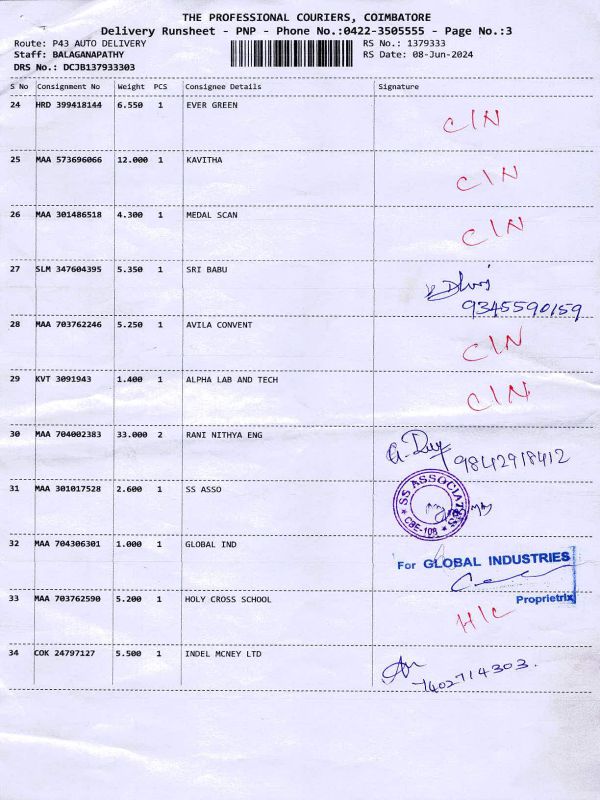 THE PROFESSIONAL COURIERS, COIMBATORE
Delivery Runsheet - PNP - Phone No.:0422-3505555 - Page No.:3
Route: P43 AUTO DELIVERY RS No.: 1379333
Staff: BALAGANAPATHY RS Date: 08-Jun-2024
DRS No.: DCJB137933303
S No Consignment No Weight PCS Consignee Details Signature
24 HRD 399418144 6.550 1 EVER GREEN CIN
25 MAA 573696066 12.000 1 KAVITHA CIN
26 MAA 301486518 4.300 1 MEDAL SCAN CIN
27 SLM 347604395 5.350 1 SRI BABU
9345590159
28 MAA 703762246 5.250 1 AVILA CONVENT CIN
29 KVT 3091943 1.400 1 ALPHA LAB AND TECH CIN
30 MAA 704002383 33.000 2 RANI NITHYA ENG
9842918412
31 MAA 301017528 2.600 1 SS ASSO
SS ASSOCIATES
CBE-108
32 MAA 704306301 1.000 1 GLOBAL IND
For GLOBAL INDUSTRIES
Proprietrix
33 MAA 703762590 5.200 1 HOLY CROSS SCHOOL H/C
34 COK 24797127 5.500 1 INDEL MCNEY LTD
7402714303.